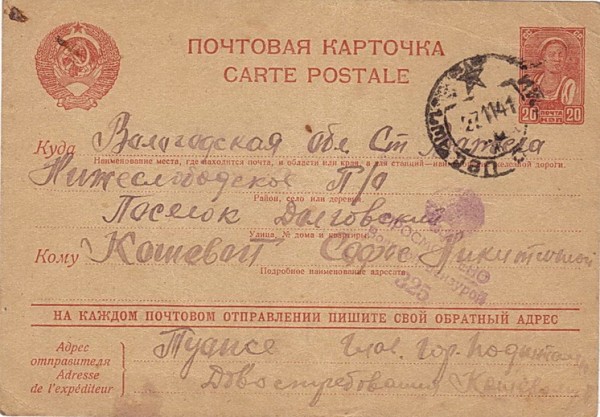 ПОЧТОВАЯ КАРТОЧКА
CARTE POSTALE
20 ПОЧТА КОП 20
27 11 41
Куда Вологодская Обл Ст
Наименование места, где находится почта, и области или края, а для станций — железной дороги.
П/о
Район, село или деревня
Поселок Долговский
Улица, № дома и квартиры
Кому Кошевой Софье Никитичной
Подробное наименование адресата
ПРОСМОТРЕНО
Военной Цензурой
325
НА КАЖДОМ ПОЧТОВОМ ОТПРАВЛЕНИИ ПИШИТЕ СВОЙ ОБРАТНЫЙ АДРЕС
Адрес отправителя Туапсе Глав. гор.
Adresse de l'expéditeur Довостребования